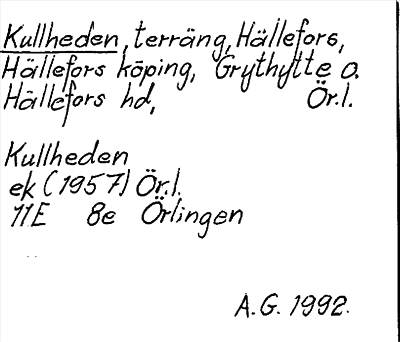 Kullheden, terräng, Hällefors,
Hällefors köping, Grythytte o.
Hällefors hd, Ör.l.
Kullheden
ek (1957) Ör.l.
11E 8e Örlingen
A.G. 1992.